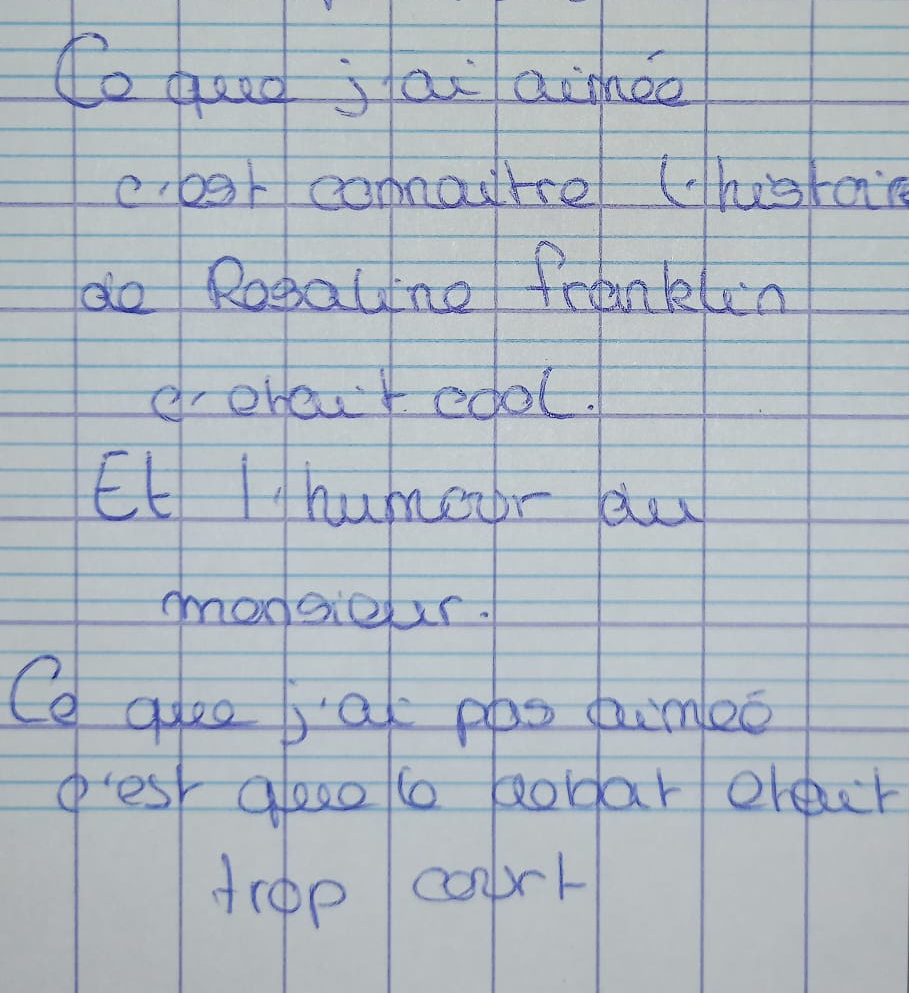 Ce que j'ai aimée
c'est connaitre l'histoire
de Rosaline franklin
c'etait cool.
Et l'humour du
monsieur.
Ce que j'ai pas aimeé
c'est que le debat etait
trop court